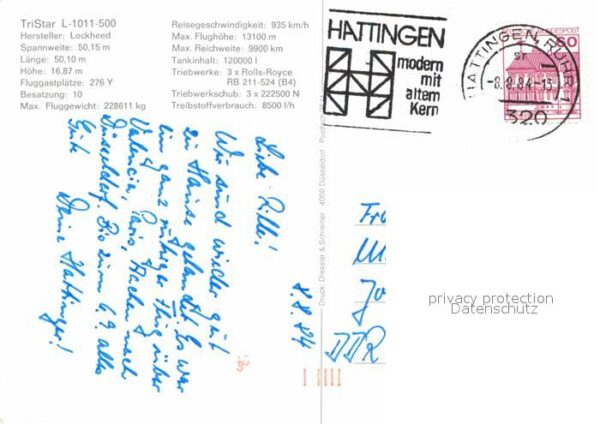 TriStar L-1011-500
Hersteller: Lockheed
Spannweite: 50,15 m
Länge: 50,10 m
Höhe: 16,87 m
Fluggastplätze: 276 Y
Besatzung: 10
Max. Fluggewicht: 228611 kg
Reisegeschwindigkeit: 935 km/h
Max. Flughöhe: 13100 m
Max. Reichweite: 9900 km
Tankinhalt: 120000 l
Triebwerke: 3 x Rolls-Royce
RB 211-524 (B4)
Triebwerkschub: 3 x 222500 N
Treibstoffverbrauch: 8500 l/h
HATTINGEN
modern
mit
altem
Kern
HATTINGEN, RUHR 1
-8.8.84-
320
BUNDESPOST
60
8.8.84
Liebe
Wir sind wieder gut
zu Hause gelandet. Es war
ein ganz ruhiger Flug über
Valencia, Paris, Aachen nach
Düsseldorf. Bis zum 6.9. alles
Gute
Deine Hattinger!
Druck: Dressler & Schreiner · 4000 Düsseldorf
Fr
M
Jo
DDR
privacy protection
Datenschutz